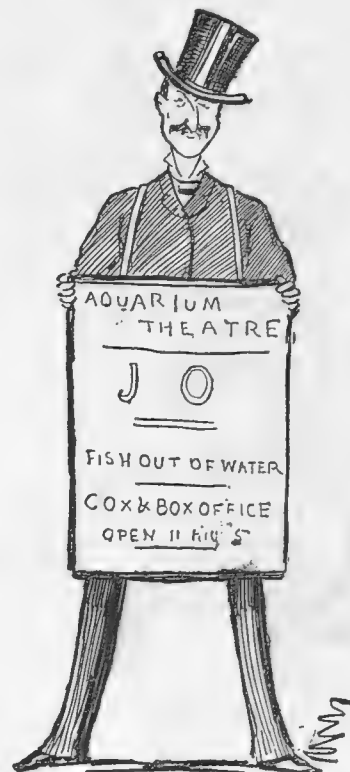 AQUARIUM
THEATRE
J O
FISH OUT OF WATER
COX & BOX OFFICE
OPEN 11 5